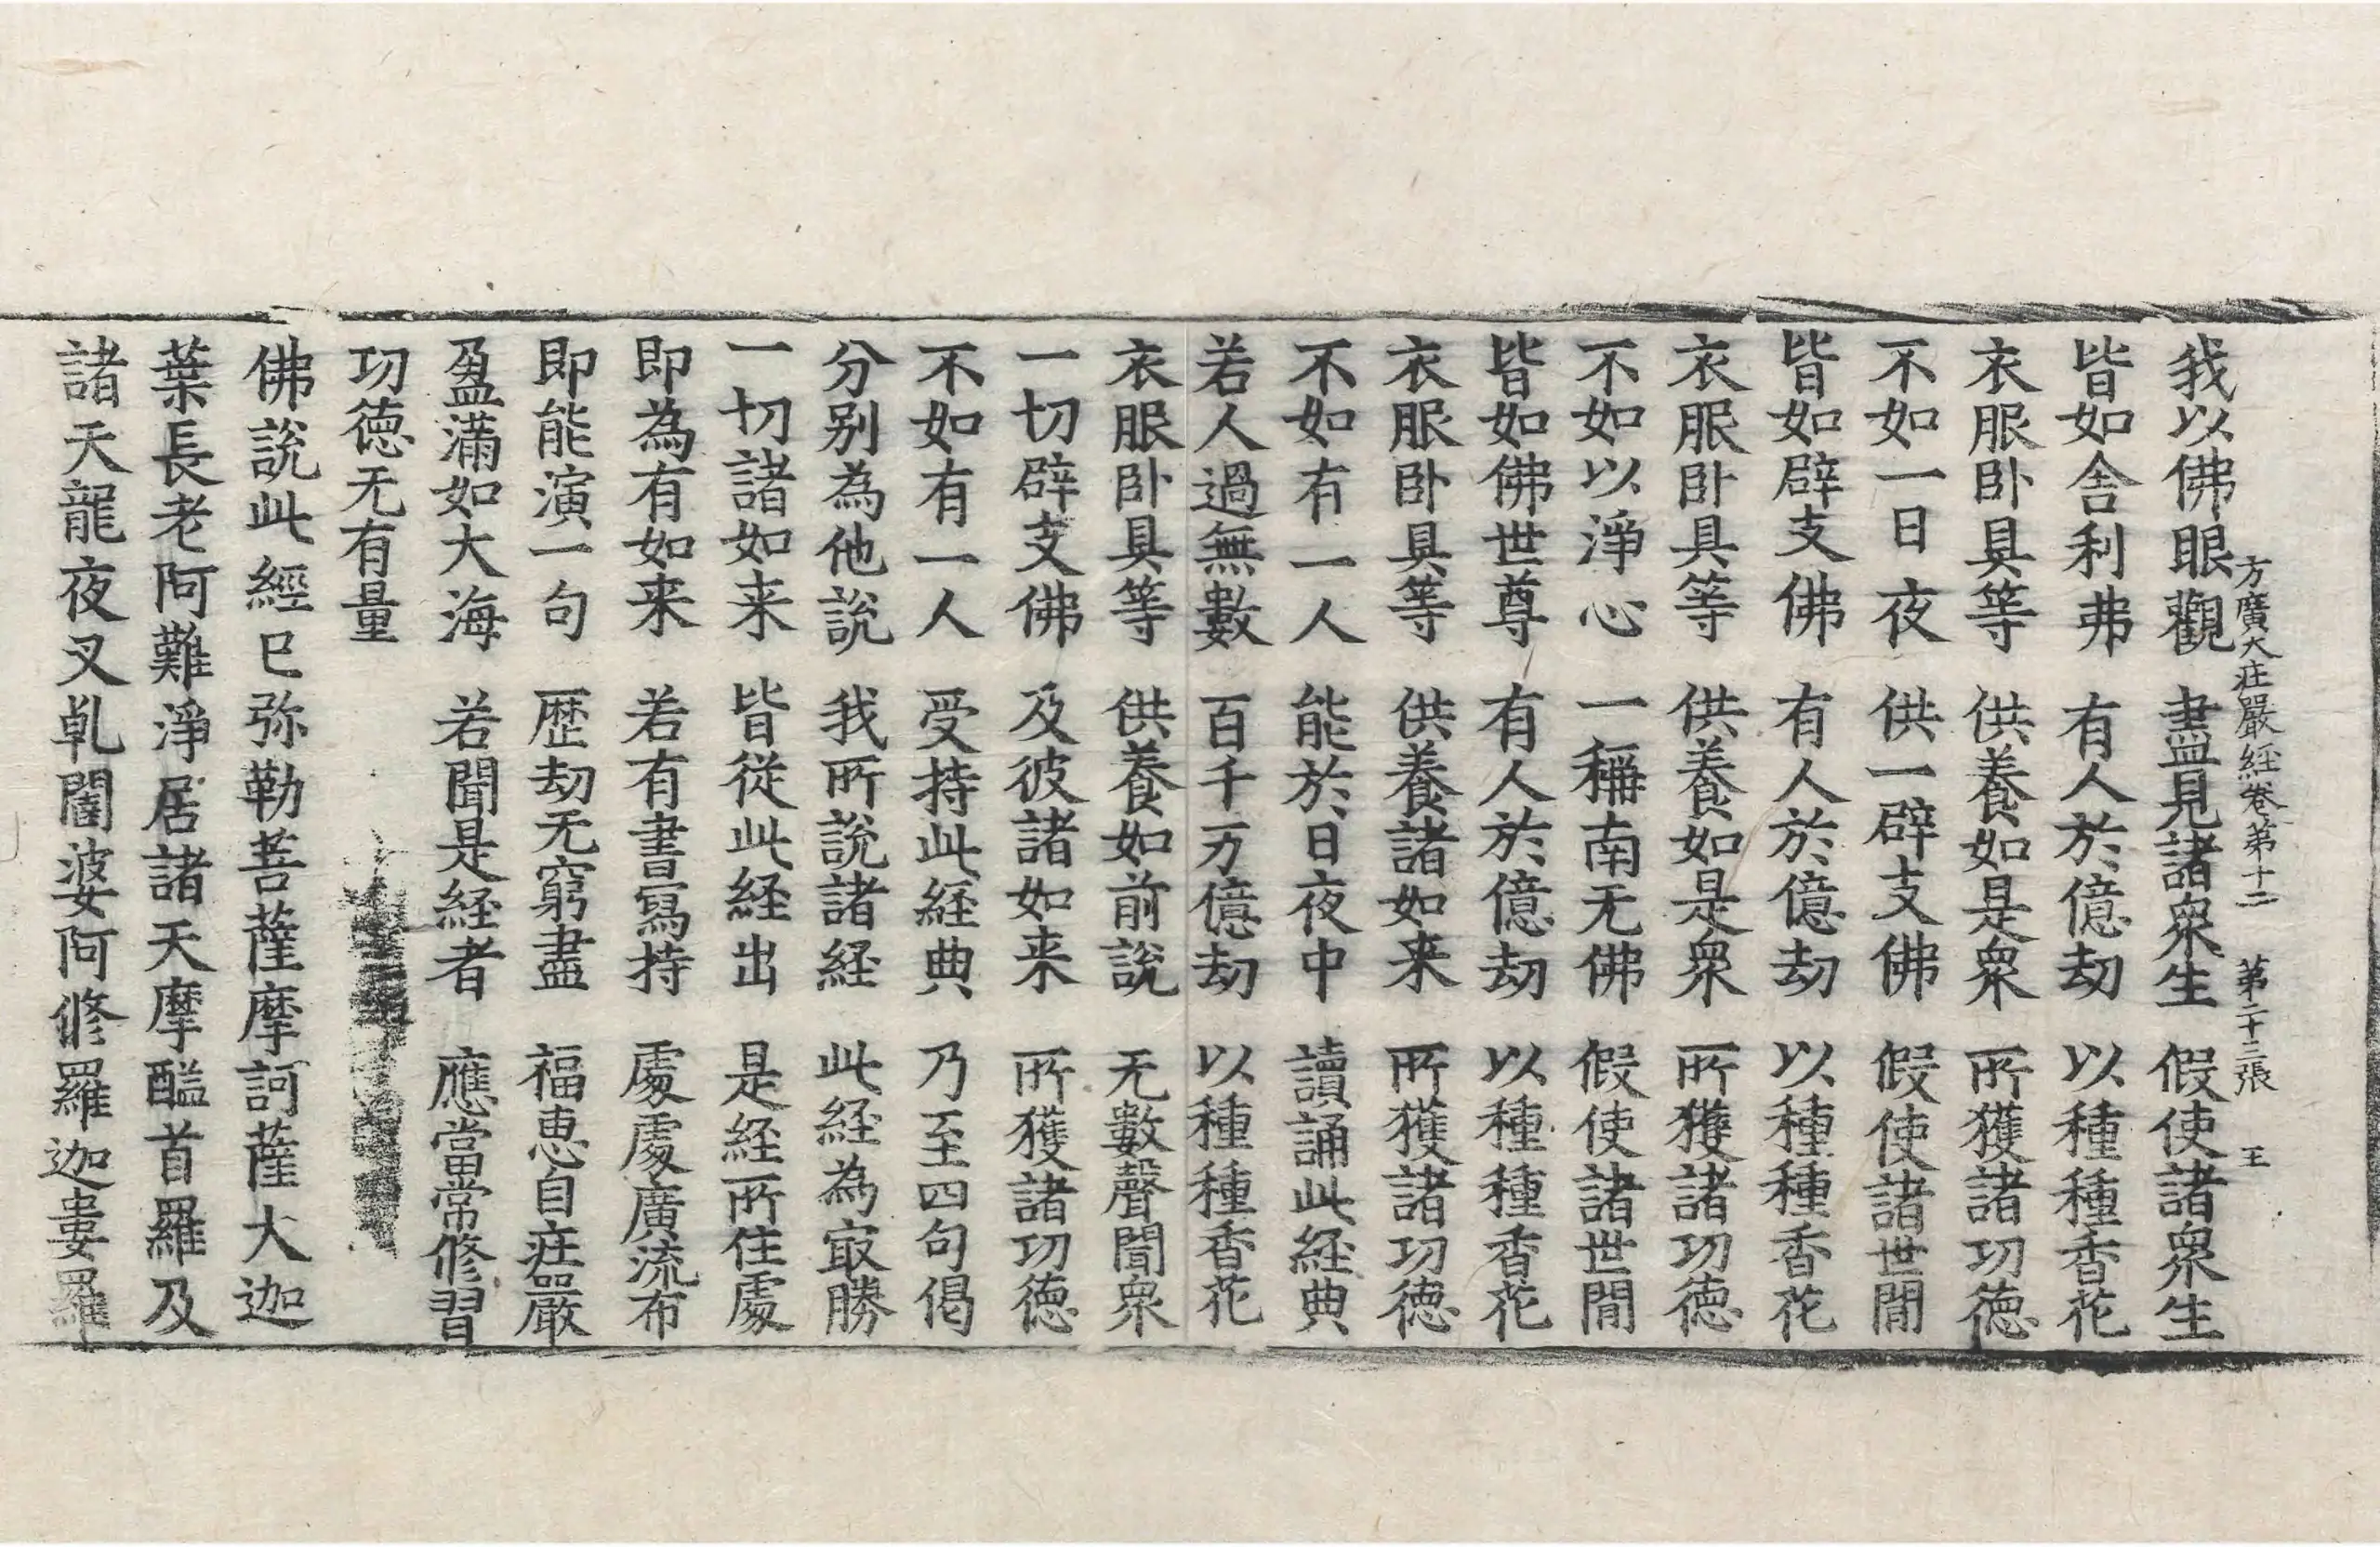 方廣大庄嚴經卷第十二 第二十三張 王
我以佛眼觀 盡見諸衆生 假使諸衆生
皆如舎利弗 有人於億劫 以種種香花
衣服卧具等 供養如是衆 所獲諸功德
不如一日夜 供一辟支佛 假使諸世閒
皆如辟支佛 有人於億劫 以種種香花
衣服卧具等 供養如是衆 所獲諸功德
不如以淨心 一稱南无佛 假使諸世閒
皆如佛世尊 有人於億劫 以種種香花
衣服卧具等 供養諸如来 所獲諸功德
不如有一人 能於日夜中 讀誦此経典
若人過無數 百千万億劫 以種種香花
衣服卧具等 供養如前說 无數聲聞衆
一切辟支佛 及彼諸如来 所獲諸功德
不如有一人 受持此経典 乃至四句偈
分别為他說 我所說諸経 此経為㝡勝
一切諸如来 皆從此経出 是経所住處
即為有如来 若有書寫持 處處廣流布
即能演一句 歷劫无窮盡 福恵自庄嚴
盈滿如大海 若聞是経者 應當常修習
功德无有量
佛說此經已弥勒菩薩摩訶薩大迦
葉長老阿難淨居諸天摩醯首羅及
諸天龍夜叉乹闥婆阿修羅迦婁羅